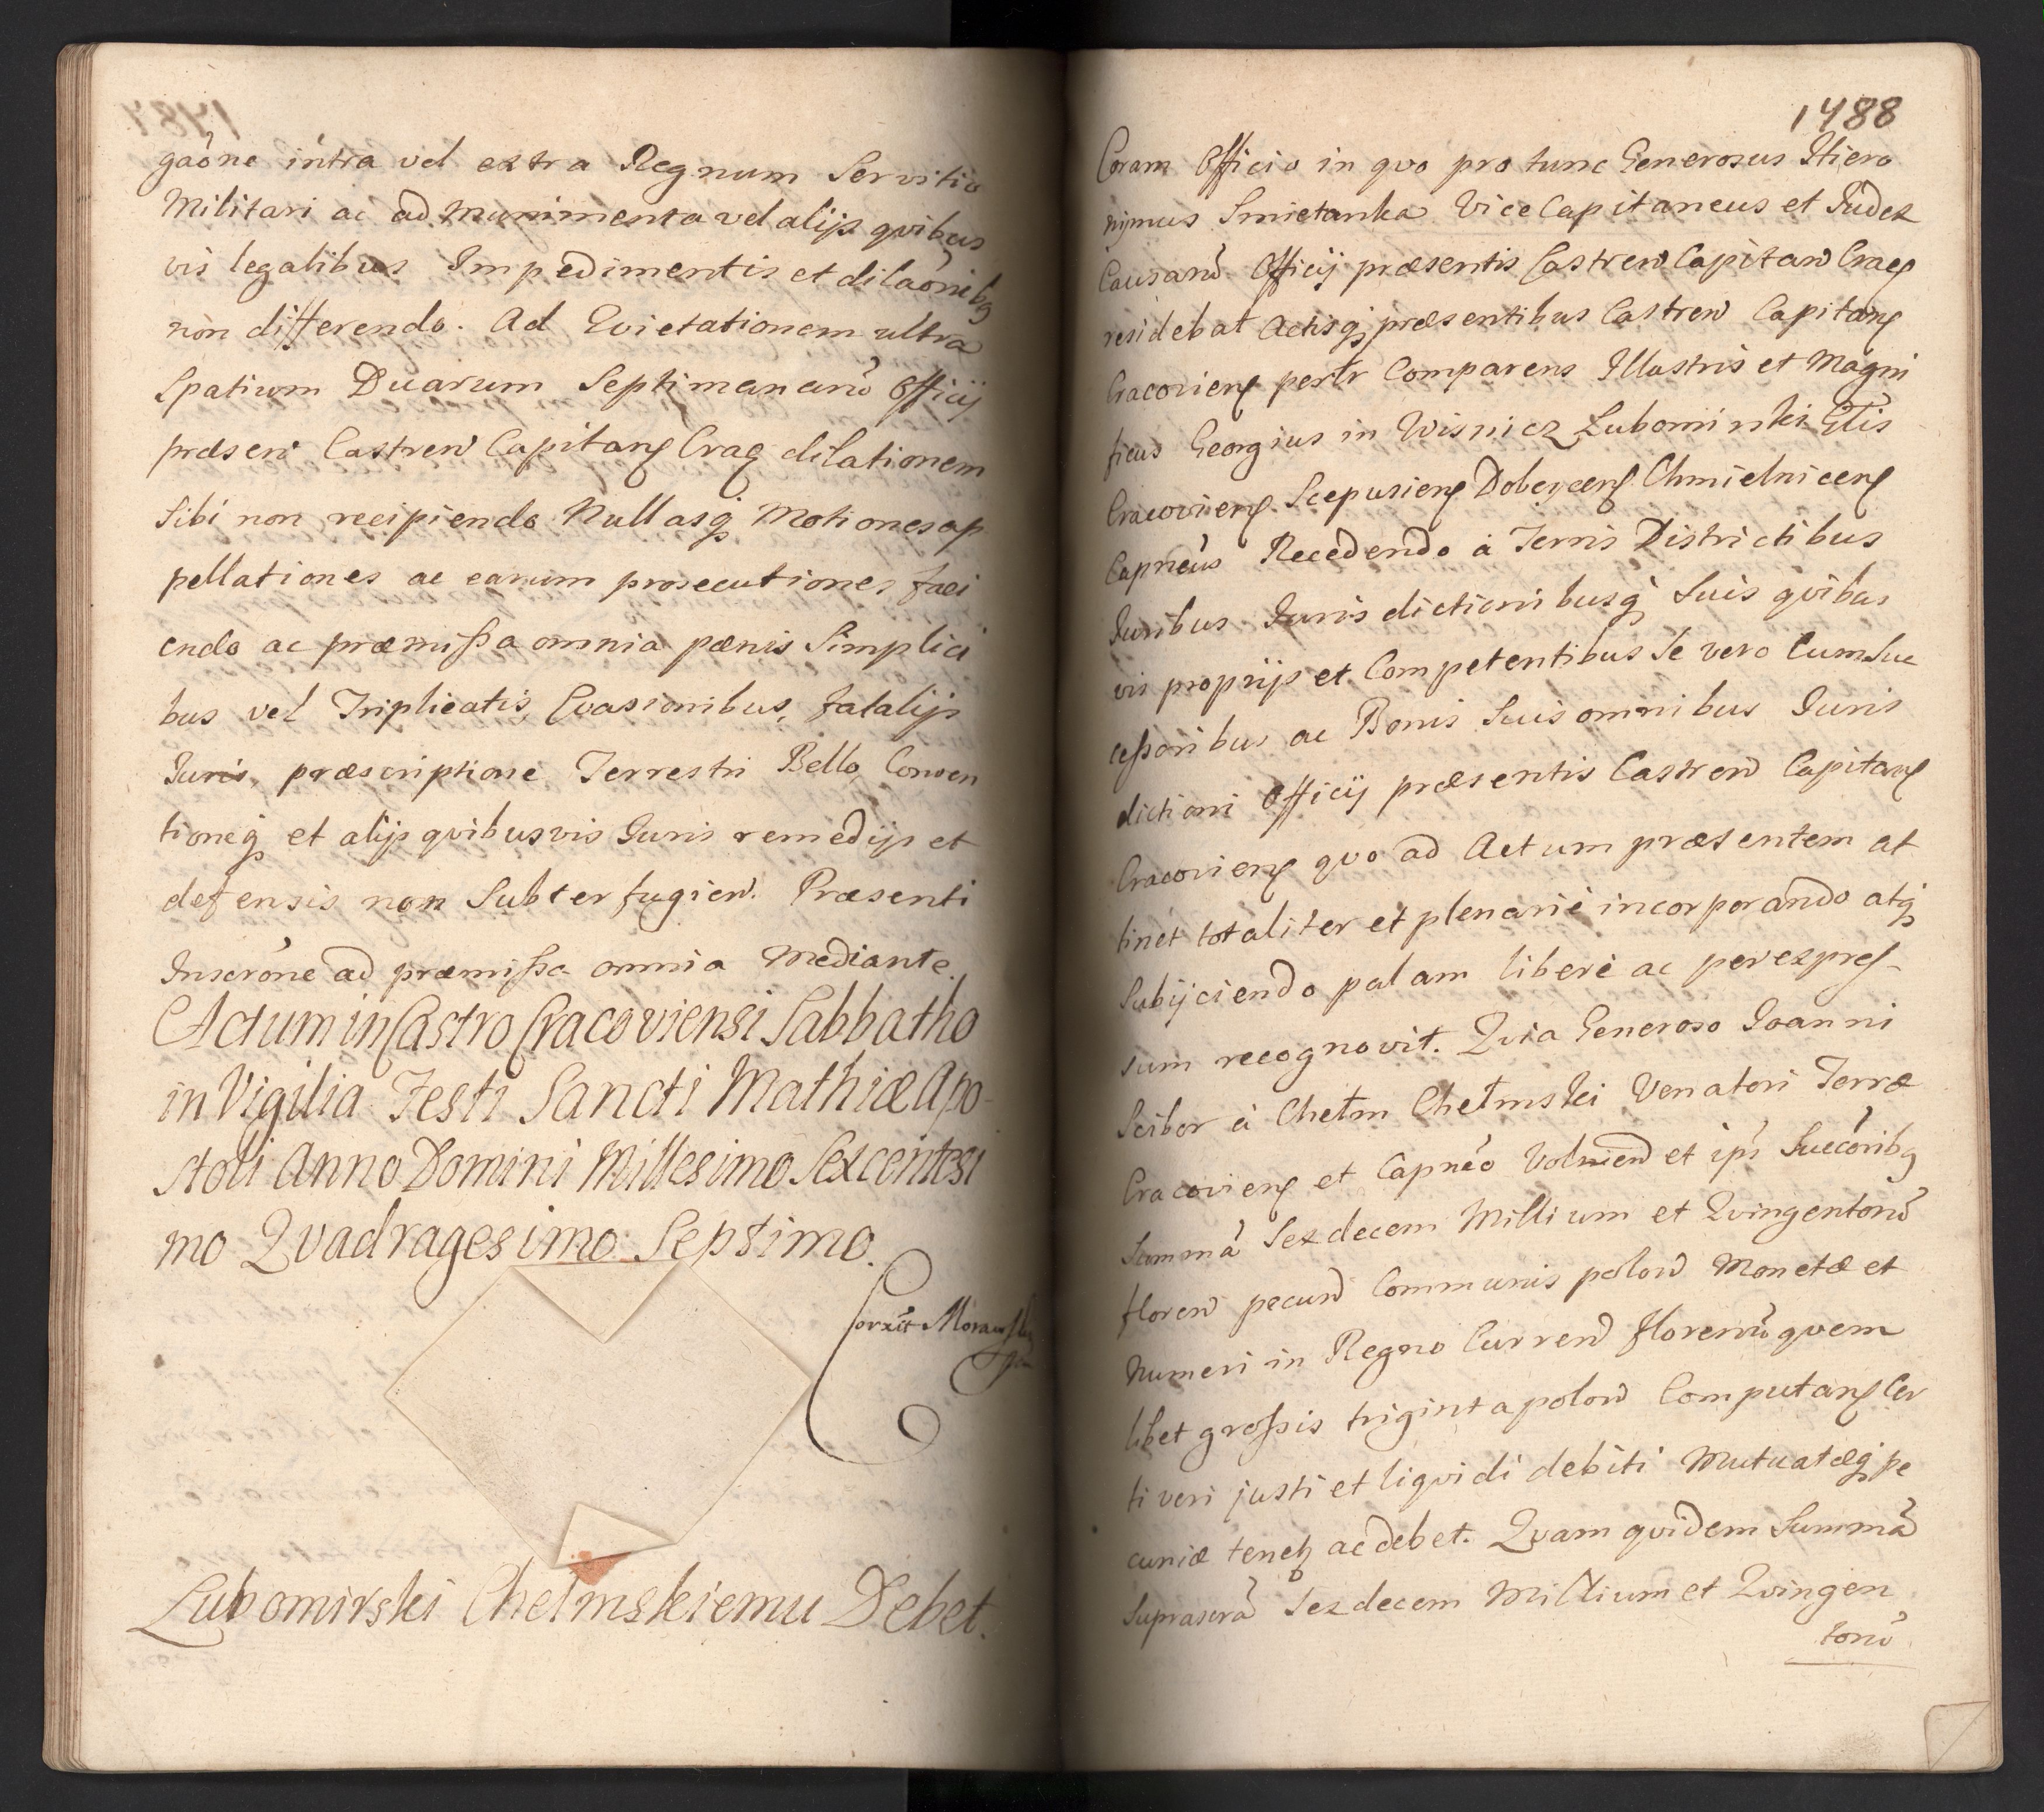 gaõne intra vel extra Regnum Servitio
Militari ac ad munimenta vel alijs qvibus
vis legalibus Impedimentis et dilaõnibq
non differendo. Ad Evictationem ultra
Spatium Duarum Septimanarũ Officij
præsen Castren Capitanę Crac dilationem
Sibi non recipiendo Nullasq Motiones ap
pellationes ac earum prosecutiones faci
endo ac præmissa omnia pænis Simplici
bus vel Triplicatis, Evasionibus, fatalijs
Juris, præscriptione Terrestri Bello, Conven
tioneq et alijs qvibusvis Juris remedijs et
defensis non Subterfugien. Præsenti
Inscrõne ad præmissa omnia Mediante.
Actum in Castro Cracoviensi Sabbatho
in Vigilia Festi Sancti Mathiæ Apo-
stoli Anno Domini Millesimo Sexcentesi
mo Qvadragesimo Septimo.
Lubomirski Chełmskiemu Debet.
1488
Coram Officio in qvo pro tunc Generosus Hiero
nymus Smietanka Vice Capitaneus et Judex
Causarũ Officij præsentis Castren Capitan Crac
residebat Actisq præsentibus Castren Capitanę
Cracovienę perlr Comparens Illustris et Magni
ficus Georgius in Wisnicz Lubomirski Glis
Cracovienę Scepusienę Dobczcenę Chmielnicenę
Capneus Recedendo à Terris Districtibus
Juribus Jurisdictionibusq Suis qvibus
vis proprijs et Competentibus Se vero Cum Suc
cessoribus ac Bonis Suis omnibus Juris
dictioni Officij præsentis Castren Capitanę
Cracovienę qvo ad Actum præsentem at
tinet totaliter et plenariè incorporando atq
Subijciendo palam liberè ac per expres-
sum recognovit. Qvia Generoso Joanni
Scibor à Chełm Chełmski Venatori Terræ
Cracovienę et Capnéo Volnien et ipś Succõribq
Summã Sexdecem Millium et Qvingentorũ
floren pecun Communis polon Monetæ et
Numeri in Regno Curren florenũ qvem
libet grossis triginta polon Computanę Cer
ti veri justi et liqvidi debiti Mutuatæq pe
cuniæ tenet ac debet. Qvam qvidem Summã
Suprascrã Sexdecem Millium et Qvingen
torũ